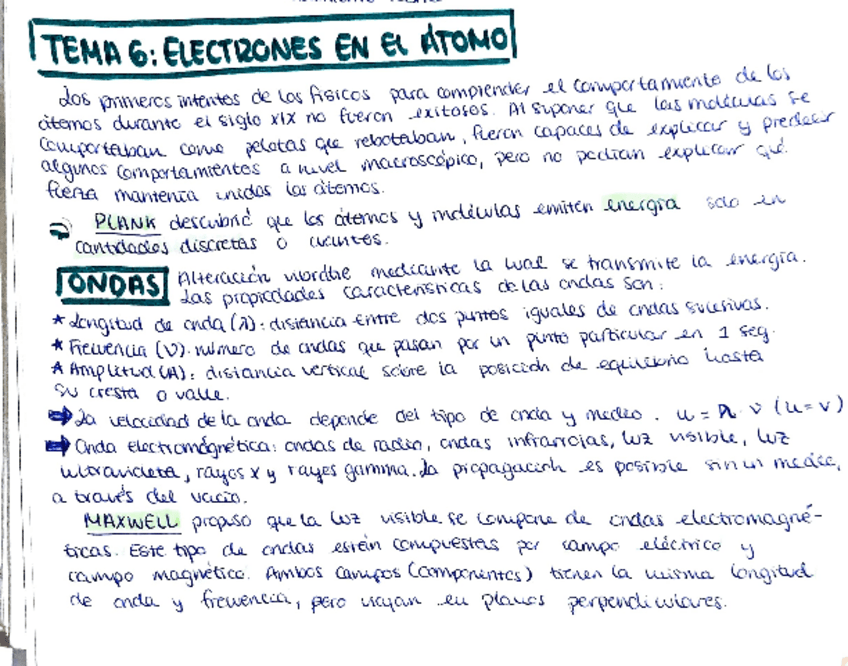 TEMA 6: ELECTRONES EN EL ÁTOMO
Los primeros intentos de los físicos para comprender el comportamiento de los
átomos durante el siglo XIX no fueron exitosos. Al suponer que las moléculas se
comportaban como pelotas que rebotaban, fueron capaces de explicar y predecir
algunos comportamientos a nivel macroscópico, pero no podían explicar qué
fuerza mantenía unidos los átomos.
PLANK descubrió que los átomos y moléculas emiten energía solo en
cantidades discretas o cuantos.
ONDAS Alteración mediante la cual se transmite la energía.
Las propiedades características de las ondas son:
* Longitud de onda (λ): distancia entre dos puntos iguales de ondas sucesivas.
* Frecuencia (ν): número de ondas que pasan por un punto particular en 1 seg.
* Amplitud (A): distancia vertical sobre la posición de equilibrio hasta
su cresta o valle.
➡ La velocidad de la onda depende del tipo de onda y medio. u = λ · ν (u = v)
➡ Onda electromagnética: ondas de radio, ondas infrarrojas, luz visible, luz
ultravioleta, rayos x y rayos gamma. La propagación es posible sin un medio,
a través del vacío.
MAXWELL propuso que la luz visible se compone de ondas electromagné-
ticas. Este tipo de ondas están compuestas por campo eléctrico y
campo magnético. Ambos campos (componentes) tienen la misma longitud
de onda y frecuencia, pero viajan en planos perpendiculares.